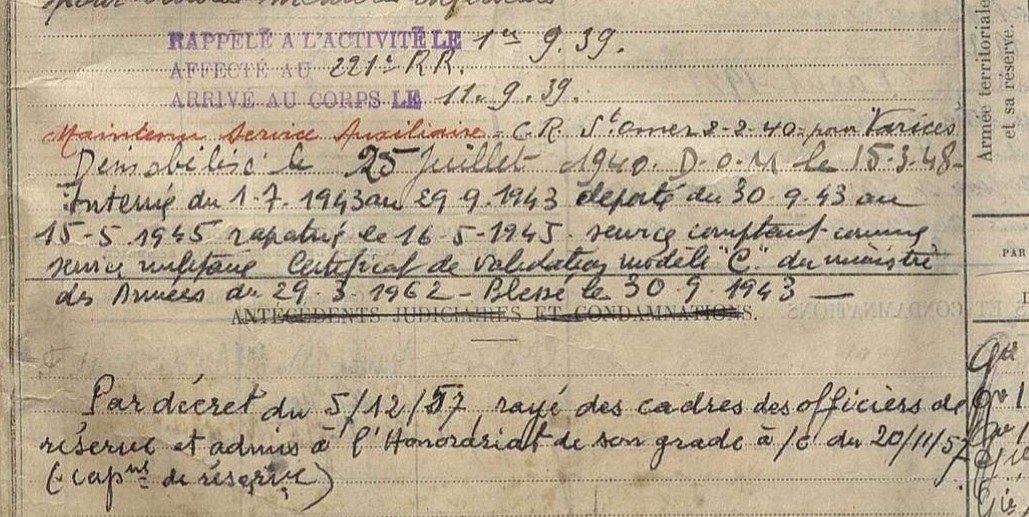 pour
RAPPELÉ A L'ACTIVITÉ LE 1er 9.39.
AFFECTÉ AU 221e R.R.
ARRIVÉ AU CORPS LE 11.9.39.
Maintenu Service Auxiliaire - C.R. St Omer 2-2-40 pour Varices
Démobilisé le 25 Juillet 1940. D.O.M le 15-3-48-
Interné du 1-7.1943 au 29 9.1943 déporté du 30.9.43 au
15-5.1945 rapatrié le 16-5-1945. service comptant comme
service militaire Certificat de validation modèle "C" du ministre
des Armées du 29.3.1962 - Blessé le 30.9.1943 —
ANTÉCÉDENTS JUDICIAIRES ET CONDAMNATIONS.
Par décret du 5/12/57 rayé des cadres des officiers de
réserve et admis à l'Honorariat de son grade à /c du 20/11/57
de réserve)
Armée territoriale
et sa réserve.
PAR